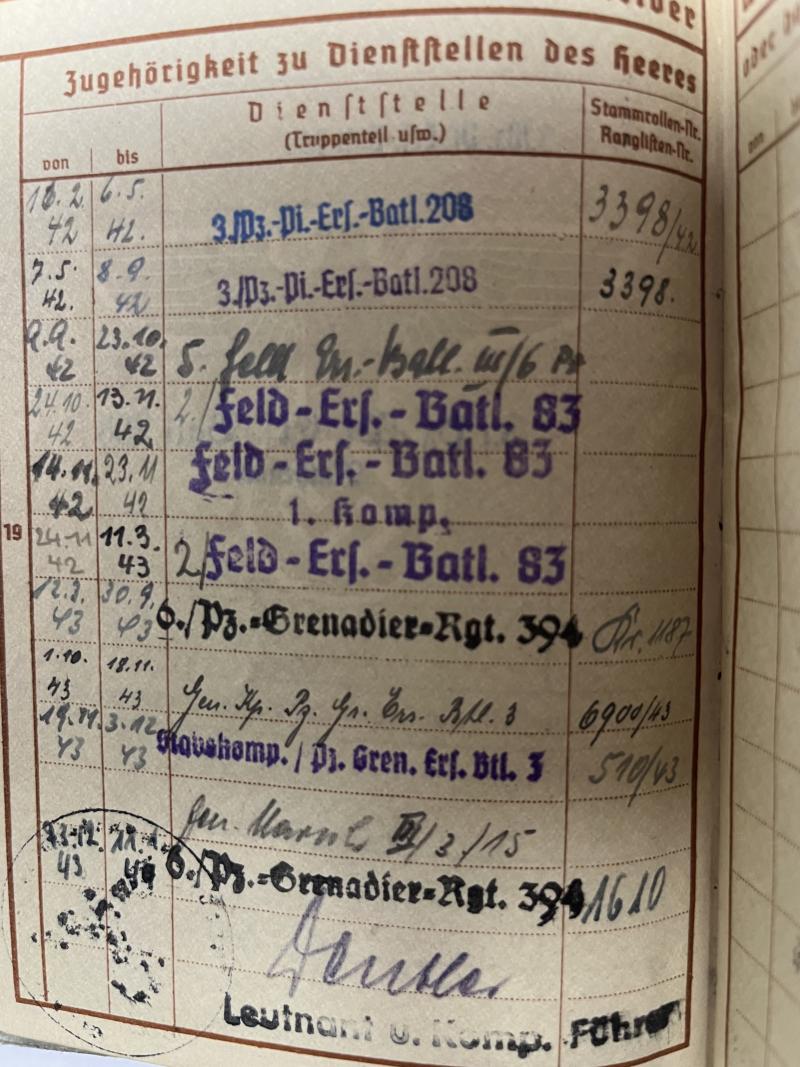 Zugehörigkeit zu Dienststellen des Heeres
von bis Dienststelle (Truppenteil usw.) Stammrollen-Nr. Ranglisten-Nr.
6.5. 42 42. 3./Pz.-Pi.-Ers.-Batl.208 3398/42
7.5. 42. 8.9. 42 3./Pz.-Pi.-Ers.-Batl.208 3398.
9.9. 42 23.10. 42 5. Feld Ers.-Batl. III/6
24.10. 42 13.11. 42 2./Feld-Ers.-Batl. 83
14.11. 42 23.11 42 Feld-Ers.-Batl. 83
1. Komp.
19
24.11 42 11.3. 43 2/Feld-Ers.-Batl. 83
12.3. 43 30.9. 43 6./Pz.=Grenadier=Rgt. 394 Kr. 1187
1.10. 43 18.11. 43 Gen. Kp. Pz. Gr. Ers. Btl. 3 6900/43
19.11. 43 3.12. 43 Stabskomp. / Pz. Gren. Ers. Btl. 3 510/43
Gen. Marsch III/3/15
43 6./Pz.=Grenadier=Rgt. 394 1610
Leutnant u. Komp. Führer